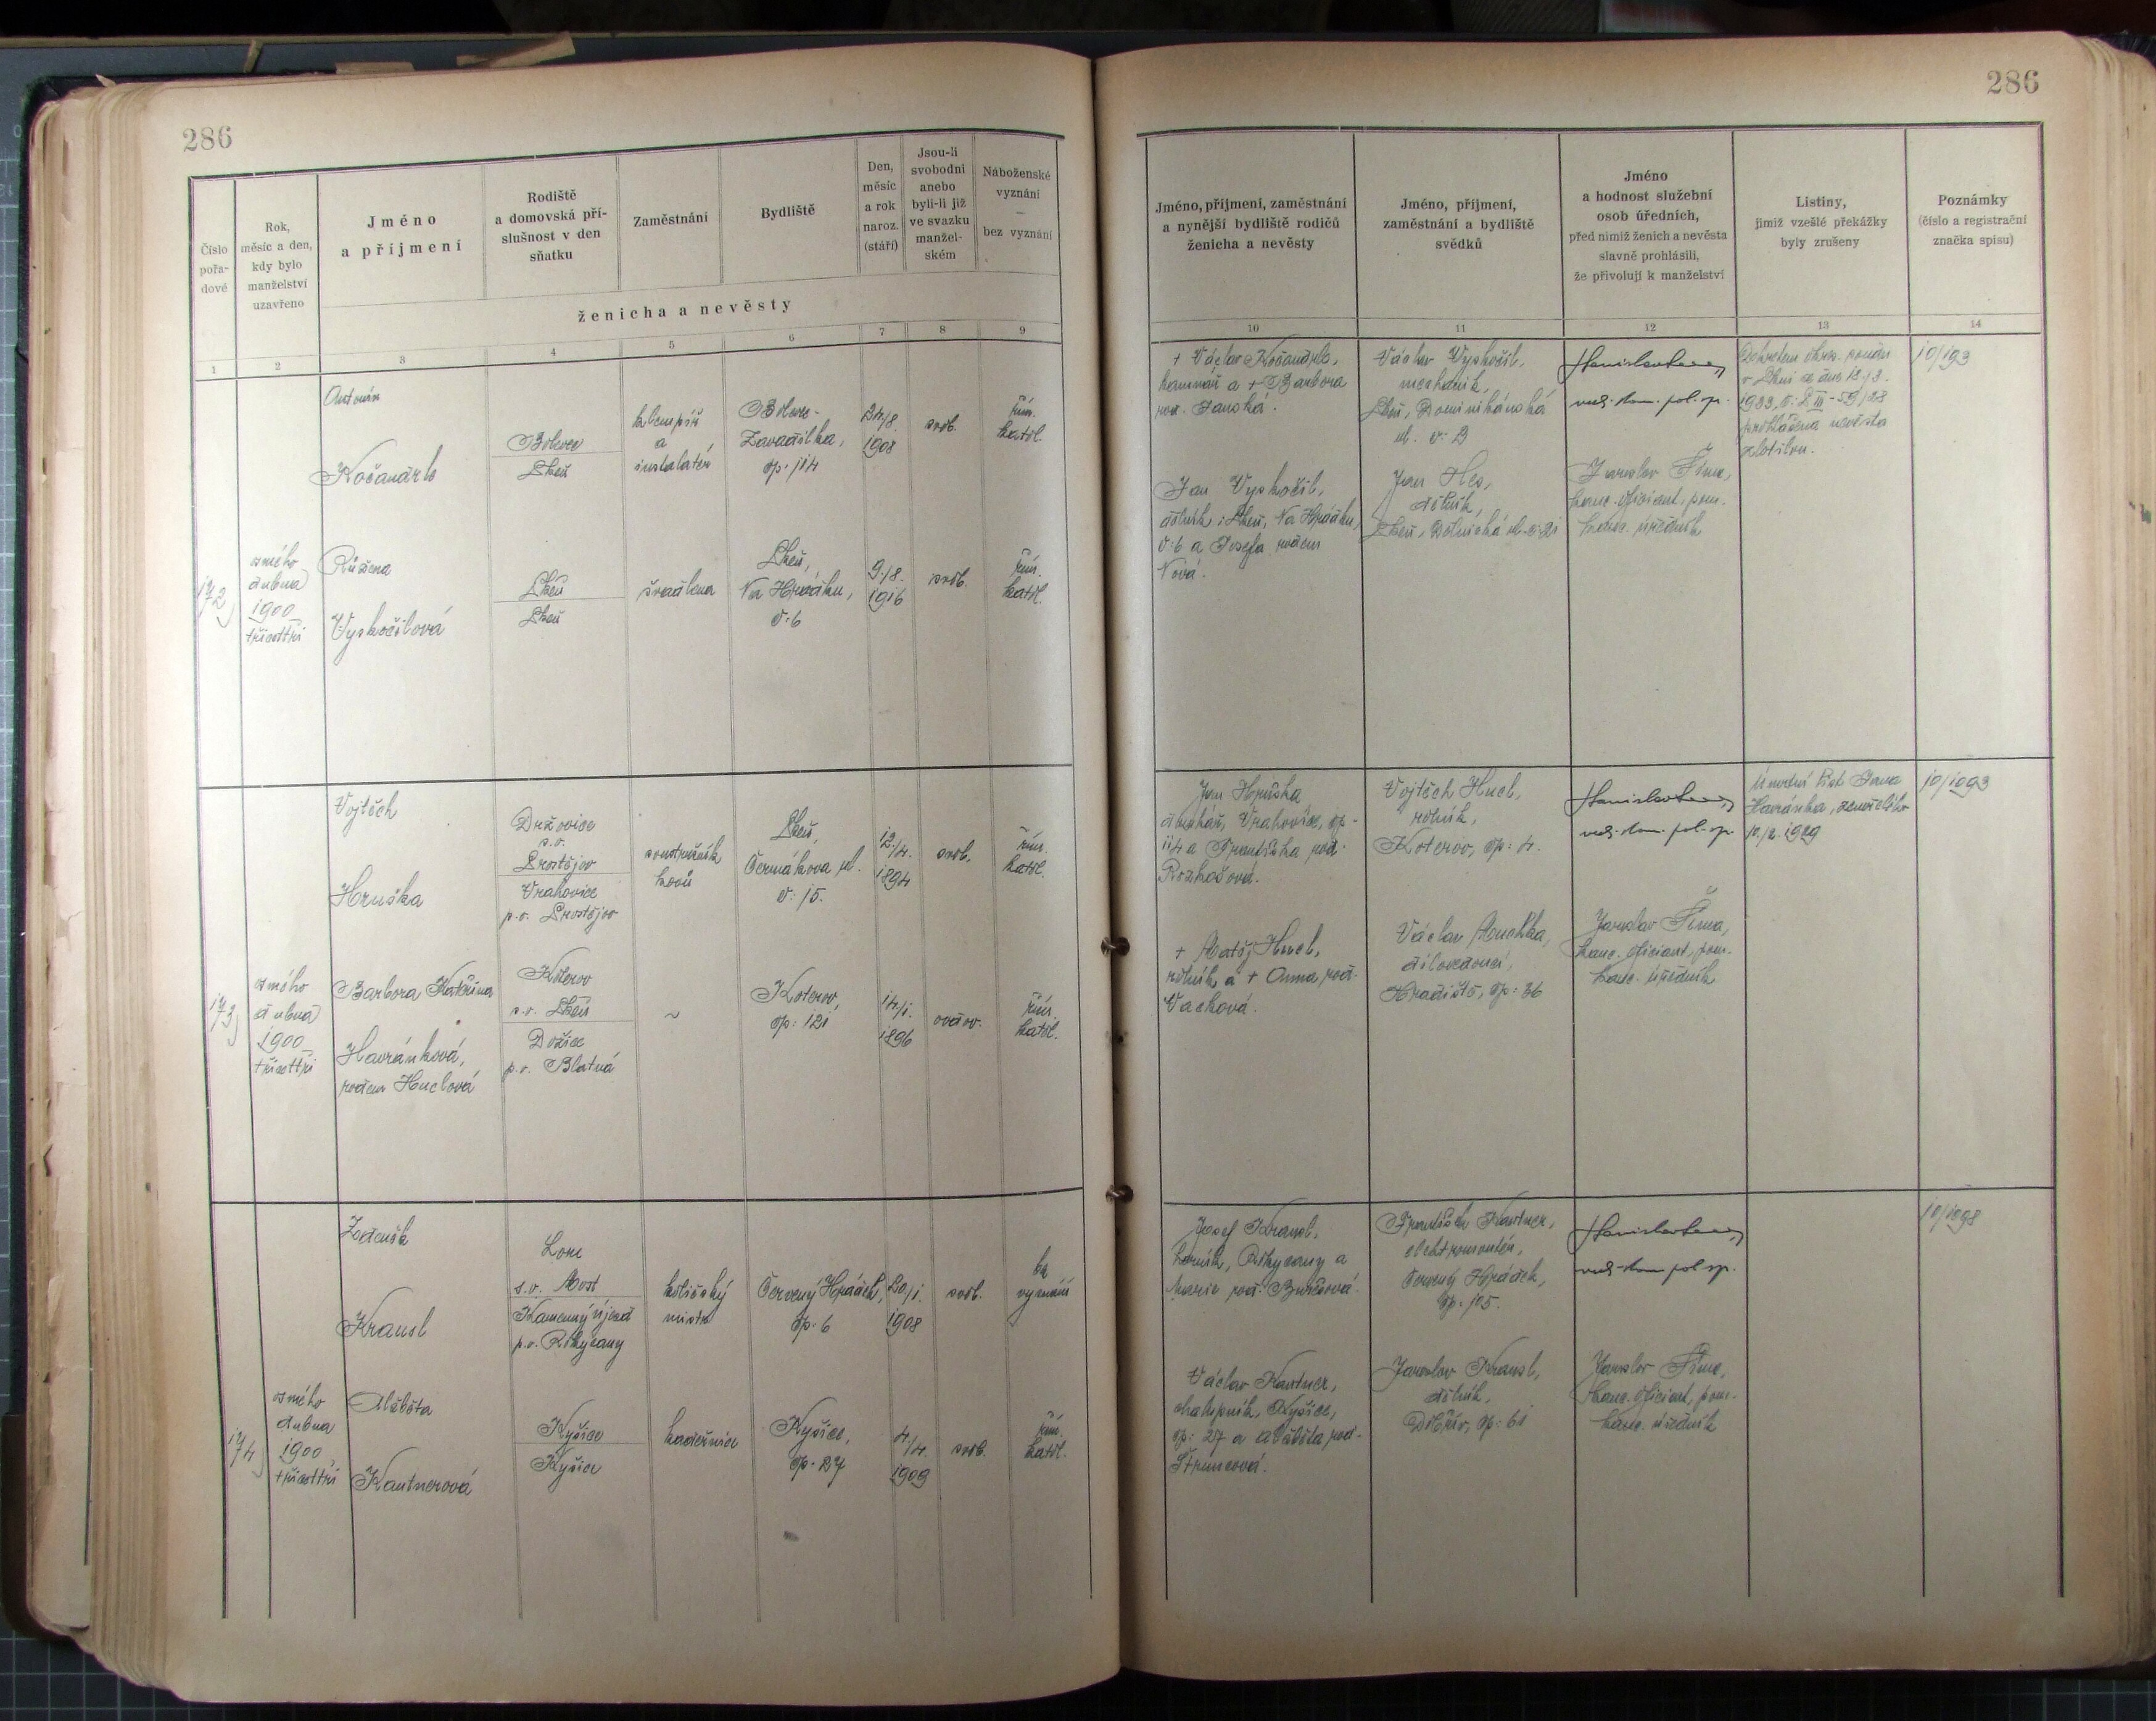 286
286
Číslo
pořa-
dové
Rok,
měsíc a den,
kdy bylo
manželství
uzavřeno
Jméno
a příjmení
Rodiště
a domovská pří-
slušnost v den
sňatku
Zaměstnání
Bydliště
Den,
měsíc
a rok
naroz.
(stáří)
Jsou-li
svobodni
anebo
byli-li již
ve svazku
manžel-
ském
Náboženské
vyznání
—
bez vyznání
ženicha a nevěsty
1
2
3
4
5
6
7
8
9
Jméno, příjmení, zaměstnání
a nynější bydliště rodičů
ženicha a nevěsty
Jméno, příjmení,
zaměstnání a bydliště
svědků
Jméno
a hodnost služební
osob úředních,
před nimiž ženich a nevěsta
slavně prohlásili,
že přivolují k manželství
Listiny,
jimiž vzešlé překážky
byly zrušeny
Poznámky
(číslo a registrační
značka spisu)
10
11
12
13
14
172
osmého
dubna
1900
třicettři
Antonín
Kočandrle
Bolevec
Plzeň
klempíř
a
instalatér
Bolevec-
Zavadilka,
čp. 114
24/8.
1908
svob.
řím.
katol.
Růžena
Vyskočilová
Plzeň
Plzeň
švadlena
Plzeň,
Na Hrádku,
č: 6
9/8.
1916
svob.
řím.
katol.
+ Václav Kočandrle,
a + Barbora
roz. Janská.
Jan Vyskočil,
dělník, Plzeň, Na Hrádku,
č: 6 a Josefa rodem
Nová.
Václav Vyskočil,
mechanik,
Plzeň, Dominikánská
ul. č: 
Jan Hes,
dělník,
Plzeň, Dělnická ul. č: 21
rada kom. pol. sp.
Jaroslav Šíma,
kanc. oficiant, pom.
kanc. úředník
Dekretem okres. soudu
v Plzni ze dne 18/3.
1933, č: P III - 59/28
prohlášena nevěsta
zletilou.
10/193
173
osmého
dubna
1900
třicettři
Vojtěch
Hruška
Držovice
s.o.
Prostějov
Vrahovice
p.o. Prostějov
soustružník
kovů
Plzeň,
Čermákova ul.
č: 15.
12/4.
1894
svob.
řím.
katol.
Barbora Kateřina
Havránková,
rodem Huclová
Koterov
s.o. Plzeň
Dožice
p.o. Blatná
~
Koterov,
čp: 121
14/1.
1896
ovdov.
řím.
katol.
Jan Hruška
Vrahovice, čp-
114 a Františka roz.
+ Matěj Hucl,
rolník a + Anna roz.
Vacková.
Vojtěch Hucl,
rolník,
Koterov, čp: 4.
Václav Muchka,
dílovedoucí,
Hradiště, čp: 36
rada kom. pol. sp.
Jaroslav Šíma,
kanc. oficiant, pom.
kanc. úředník
Úmrtní list Jana
Havránka, zemřelého
10/2. 1929
10/1093
174
osmého
dubna
1900
třicettři
Zdeněk
Kransl
Lom
s.o. Most
Kamenný újezd
p.o. Rokycany
holičský
mistr
Červený Hrádek,
čp: 6
20/1.
1908
svob.
bez
vyznání
Alžběta
Kantnerová
Kyšice
Kyšice
kadeřnice
Kyšice,
čp. 27
4/4.
1909
svob.
řím.
katol.
Josef Kransl,
horník, Rokycany a
Marie roz. Burešová.
Václav Kantner,
chalupník, Kyšice,
čp: 27 a Alžběta roz.
Štruncová.
František Kantner,
elektromontér,
Červený Hrádek,
čp. 105.
Jaroslav Kransl,
dělník,
čp: 61
rada kom. pol. sp.
Jaroslav Šíma,
kanc. oficiant, pom.
kanc. úředník
10/1098